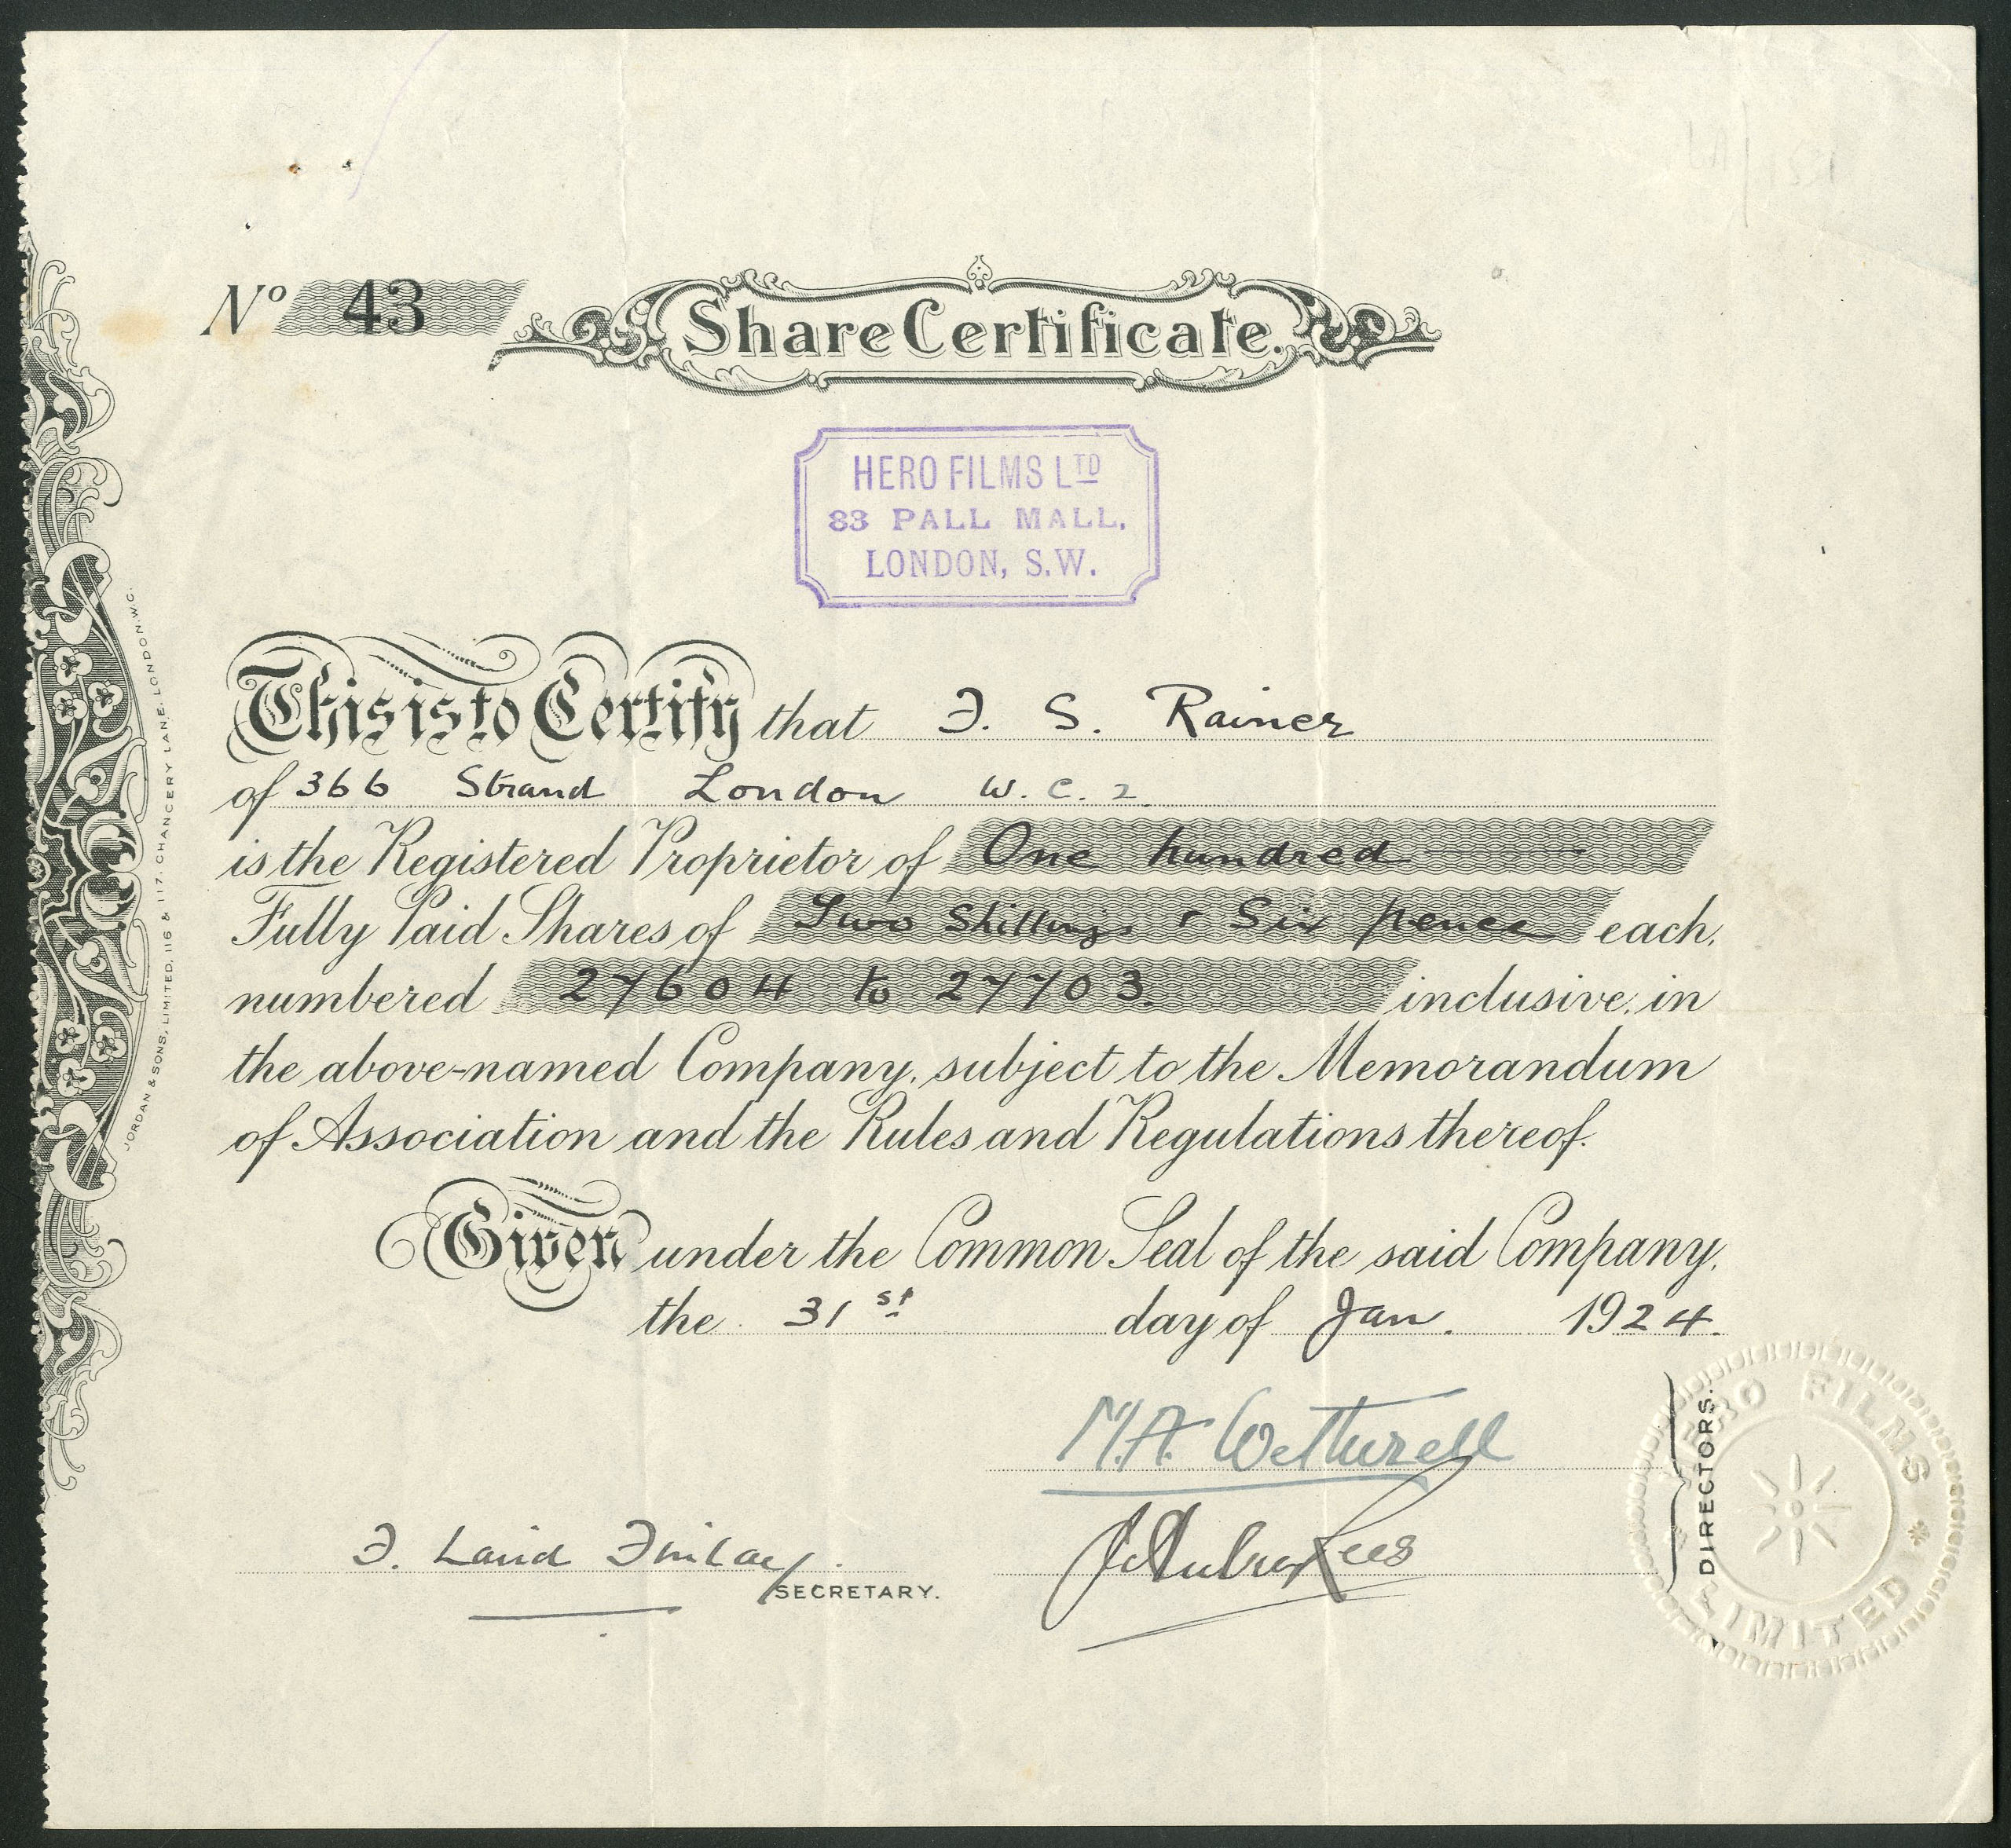 Nº 43
Share Certificate.
HERO FILMS LTD
83 PALL MALL,
LONDON, S.W.
This is to Certify that F. S. Rainer
of 366 Strand London W.C.2.
is the Registered Proprietor of One hundred
Fully Paid Shares of Two Shillings & Six pence each,
numbered 27604 to 27703. inclusive, in
the above-named Company, subject to the Memorandum
of Association and the Rules and Regulations thereof.
Given under the Common Seal of the said Company,
the 31st day of Jan. 1924.
M.A. Wetherell
F. Laird Finlay
SECRETARY.
Lees
DIRECTORS.
HERO FILMS
LIMITED
JORDAN & SONS, LIMITED, 116 & 117, CHANCERY LANE, LONDON, W.C.